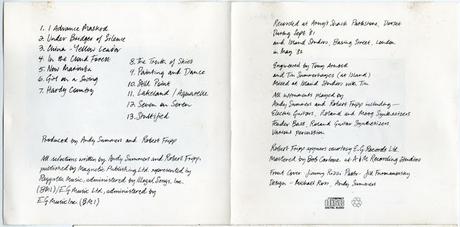 1. I Advance Masked
2. Under Bridges of Silence
3. China - Yellow Leader
4. In the Cloud Forest
5. New Marimba
6. Girl on a Swing
7. Hardy Country
8. The Truth of Skies
9. Painting and Dance
10. Still Point
11. Lakeland / Aquarelle
12. Seven on Seven
13. Stultified
Produced by Andy Summers and Robert Fripp
All selections written by Andy Summers and Robert Fripp,
published by Magnetic Publishing Ltd. represented by
Reggatta Music, administered by Illegal Songs, Inc.
(BMI)/E.G Music Ltd, administered by
E.G Music Inc. (BMI)
Recorded at Arny's Shack Parkstone, Dorset
During Sept. 81
and Island Studios, Basing Street, London
in May '82
Engineered by Tony Arnold
and Tim Summerhayes (at Island)
Mixed at Island Studios with Tim
All instruments played by
Andy Summers and Robert Fripp including—
Electric Guitars, Roland and Moog Synthesizers
Fender Bass, Roland Guitar Synthesizers
Various percussion.
Robert Fripp appears courtesy E.G Records Ltd.
Mastered by Bob Carbone at A&M Recording Studios
Front Cover - Jimmy Rizzi Pastor - Jill Furmanovsky
Design - Michael Ross, Andy Summers
COMPACT
disc
DIGITAL AUDIO